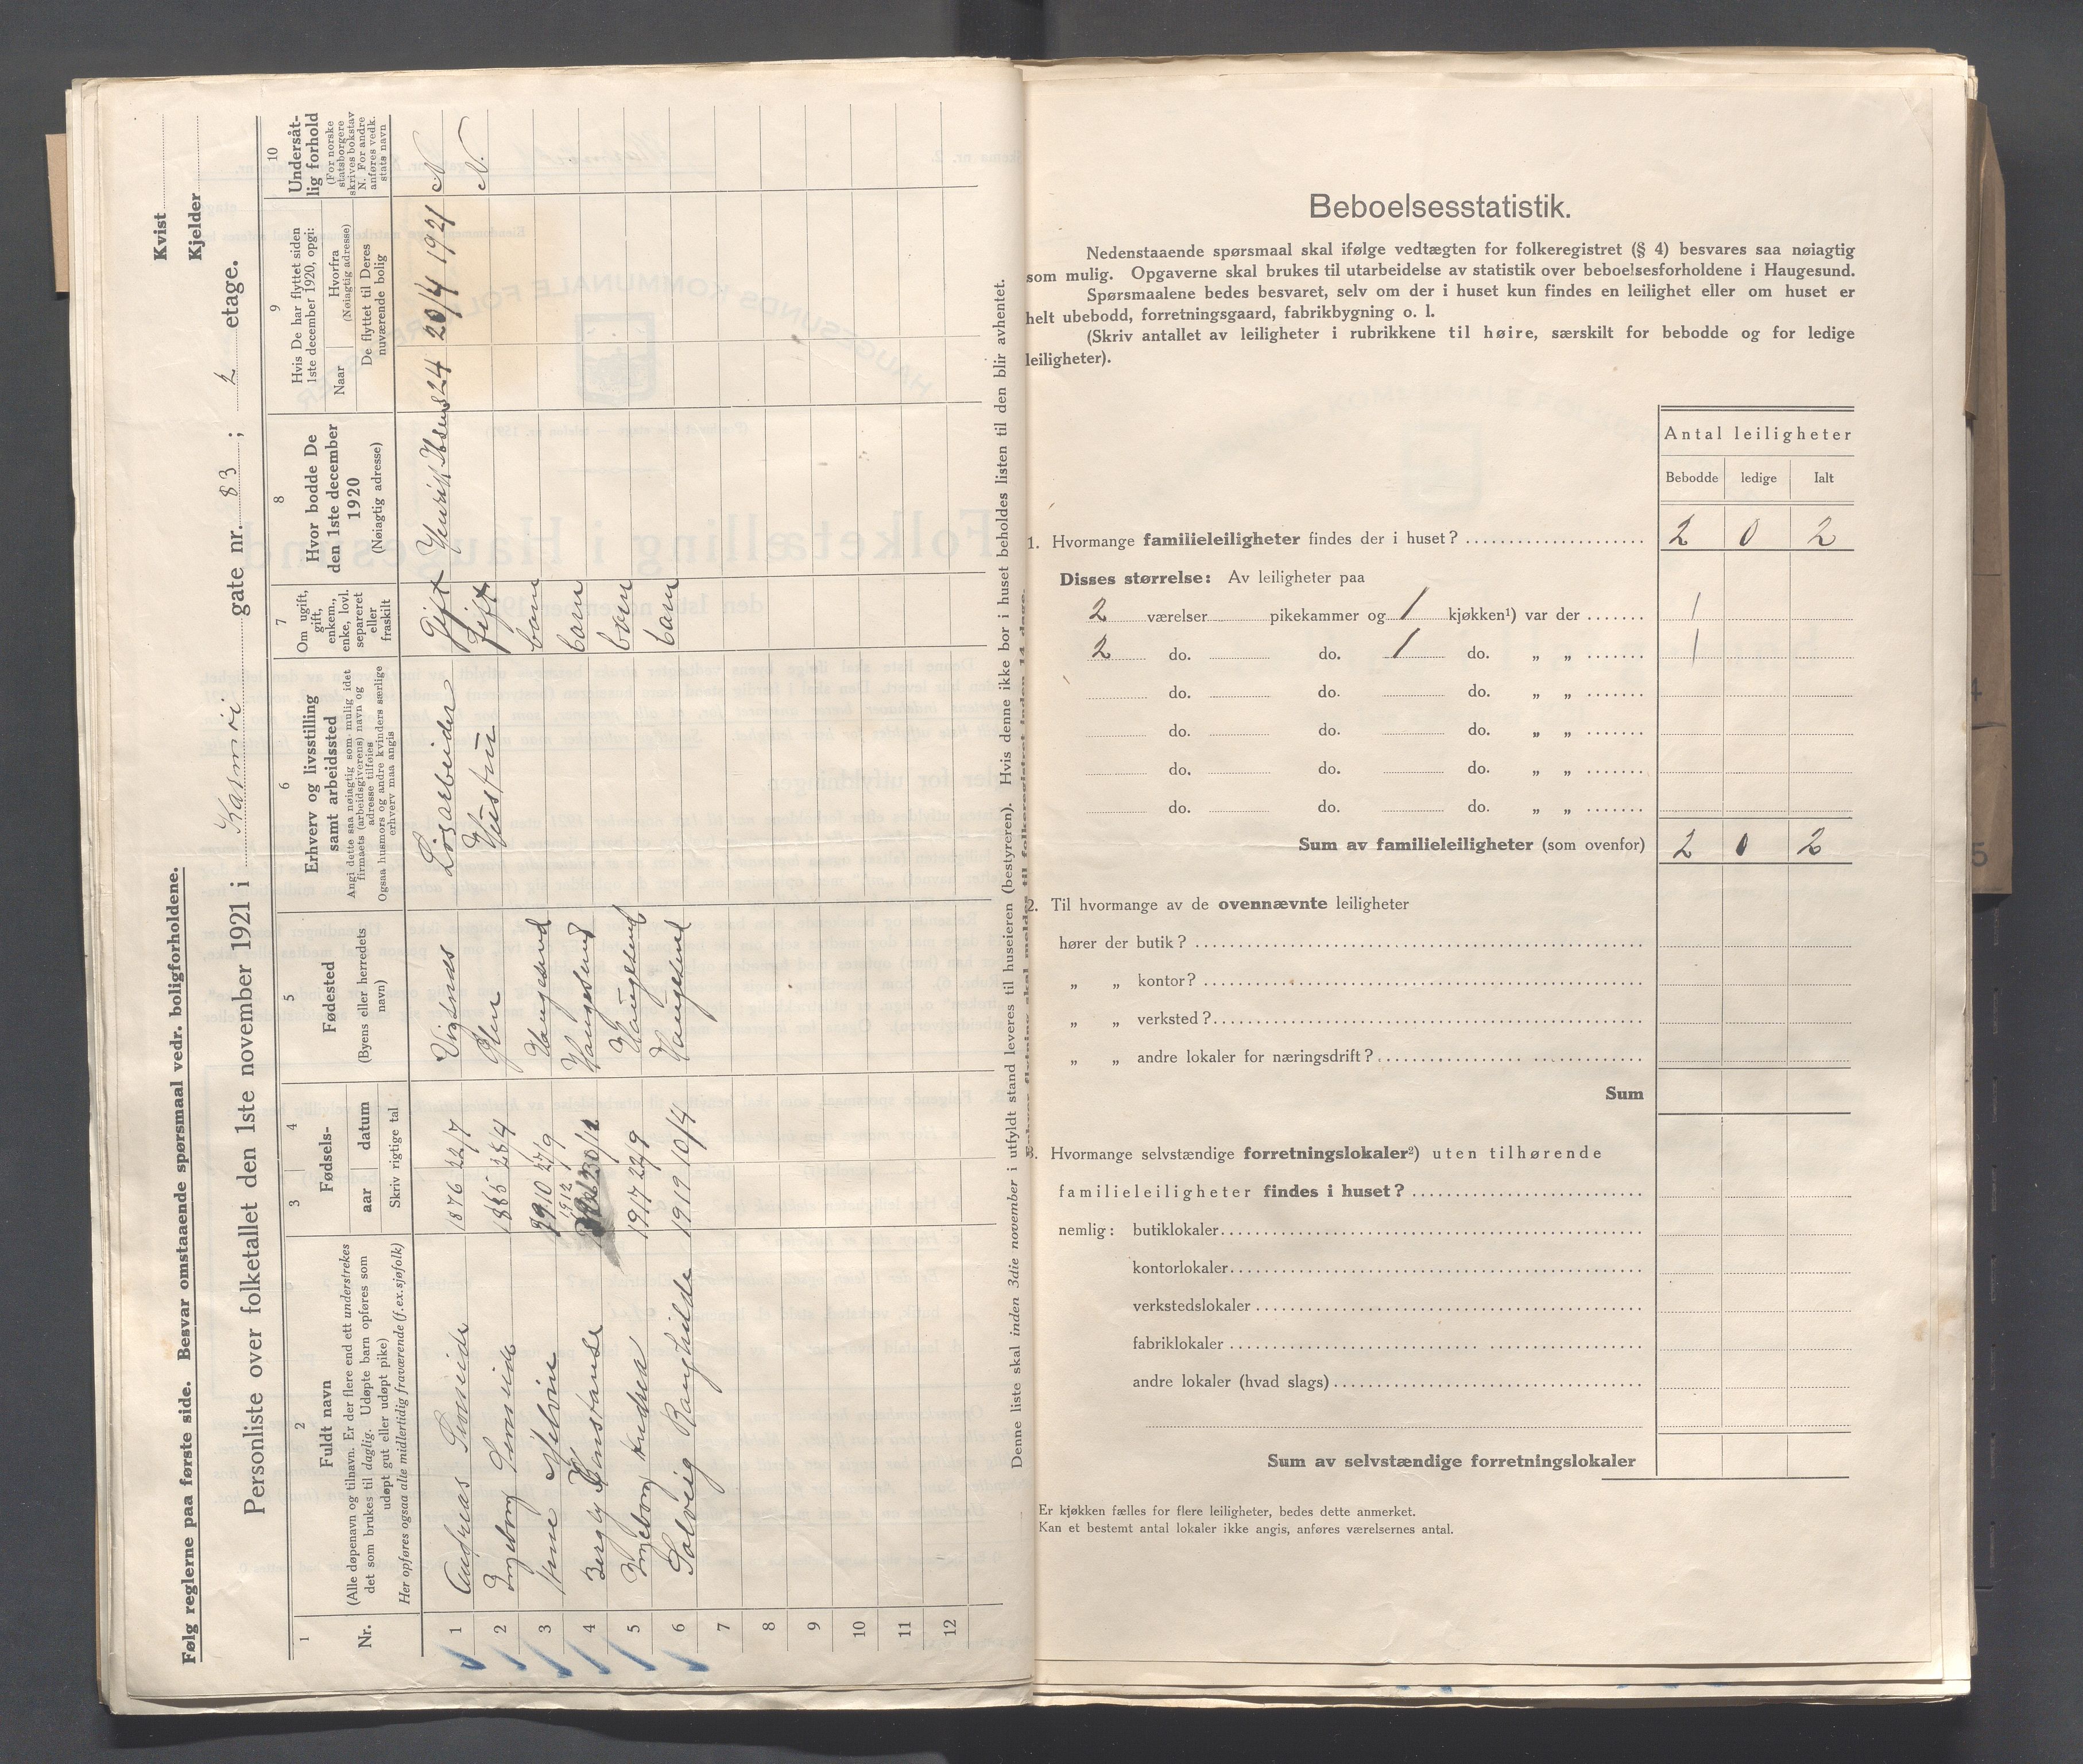 Følg reglerne paa første side. Besvar omstaaende spørsmaal vedr. boligforholdene.
Kvist
Kjelder
Personliste over folketallet den 1ste november 1921 i Karmöi gate nr. 83 ; 2 etage.
1
Nr.
2
Fuldt navn
(Alle døpenavn og tilnavn. Er der flere end ett understrekes
det som brukes til daglig. Udøpte barn opføres som
udøpt gut eller udøpt pike)
Her opføres ogsaa alle midlertidig fraværende (f.ex. sjøfolk)
3 4
Fødsels-
aar datum
Skriv rigtige tal
5
Fødested
(Byens eller herredets
navn)
6
Erhverv og livsstilling
samt arbeidssted
Angi dette saa nøiagtig som mulig idet
firmaets (arbeidsgiverens) navn og
adresse tilføies
Ogsaa husmors og andre kvinders særlige
erhverv maa angis
7
Om ugift,
gift,
enkem.,
enke, lovl.
separeret
eller
fraskilt
8
Hvor bodde De
den 1ste december
1920
(Nøiagtig adresse)
9
Hvis De har flyttet siden
1ste december 1920, opgi:
Naar
Hvorfra
(Nøiagtig adresse)
De flyttet til Deres
nuværende bolig
10
Undersåt-
lig forhold
(For norske
statsborgere
skrives bokstav
N. For andre
anføres vedk.
stats navn
1 Andreas 1876 22/7 Vigsnes Lösarbeider gift Henrik Ibsens 24 20/4 1921 N
2 Ingeborg 1885 28/4 Ølen Hustru gift N.
3 1910 27/9 Haugesund barn
4 Konstanse 1912 30/12 Haugesund barn
5 Ingeborg Andrea 1917 22/9 Haugesund barn
6 Solveig Ranghilde 1919 10/4 Haugesund barn
7
8
9
10
11
12
Denne liste skal inden 3die november i utfyldt stand leveres til huseieren (bestyreren). Hvis denne ikke bor i huset beholdes listen til den blir avhentet.
Beboelsesstatistik.
Nedenstaaende spørsmaal skal ifølge vedtægten for folkeregistret (§ 4) besvares saa nøiagtig
som mulig. Opgaverne skal brukes til utarbeidelse av statistik over beboelsesforholdene i Haugesund.
Spørsmaalene bedes besvaret, selv om der i huset kun findes en leilighet eller om huset er
helt ubebodd, forretningsgaard, fabrikbygning o. l.
(Skriv antallet av leiligheter i rubrikkene til høire, særskilt for bebodde og for ledige
leiligheter).
Antal leiligheter
Bebodde ledige Ialt
1. Hvormange familieleiligheter findes der i huset? 2 0 2
Disses størrelse: Av leiligheter paa
2 værelser pikekammer og 1 kjøkken¹) var der 1
2 do. do. 1 do. „ „ 1
do. do. do. „ „
do. do. do. „ „
do. do. do. „ „
do. do. do. „ „
Sum av familieleiligheter (som ovenfor) 2 0 2
2. Til hvormange av de ovennævnte leiligheter
hører der butik?
„ „ kontor?
„ „ verksted?
„ „ andre lokaler for næringsdrift?
Sum
Hvormange selvstændige forretningslokaler²) uten tilhørende
familieleiligheter findes i huset?
nemlig: butiklokaler
kontorlokaler
verkstedslokaler
fabriklokaler
andre lokaler (hvad slags)
Sum av selvstændige forretningslokaler
Er kjøkken fælles for flere leiligheter, bedes dette anmerket.
Kan et bestemt antal lokaler ikke angis, anføres værelsernes antal.